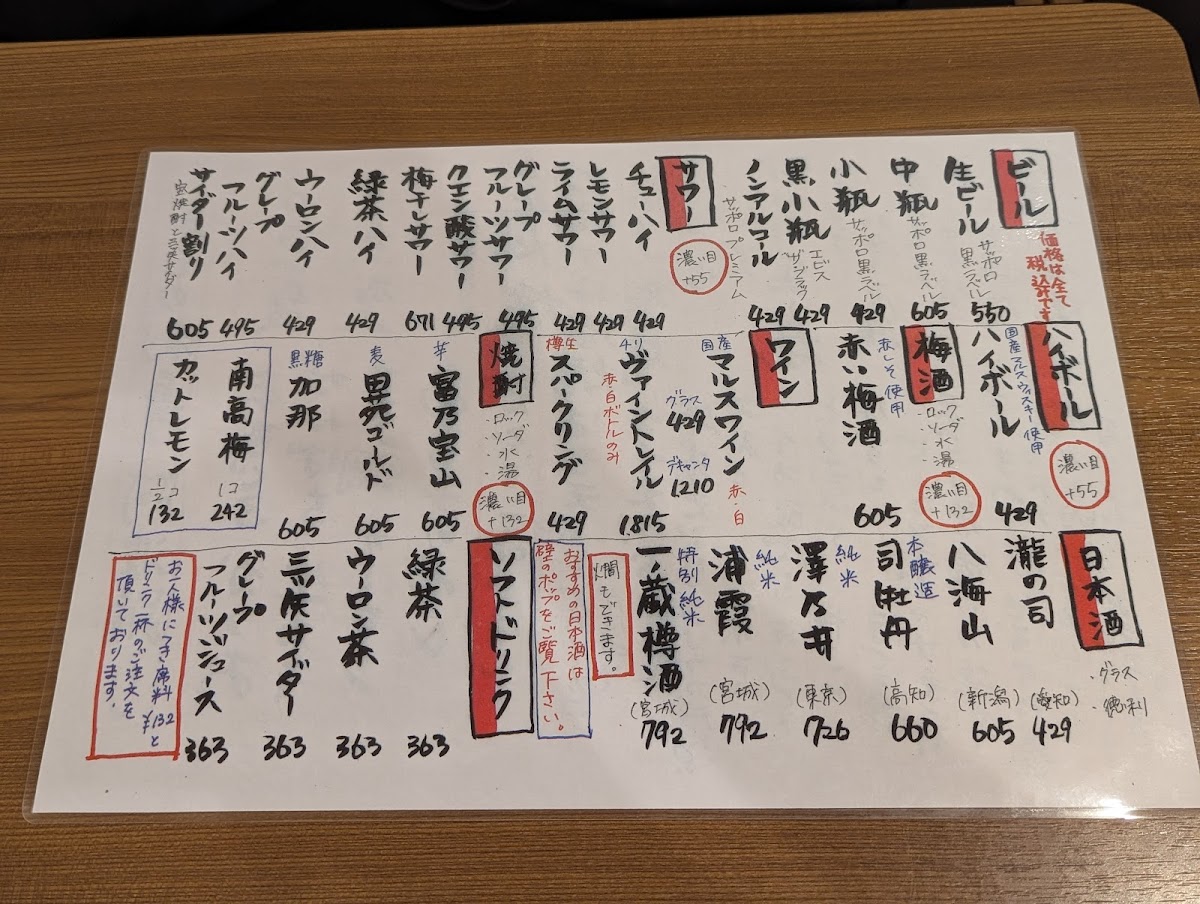 ビール
価格は全て
税込です
生ビール
サッポロ
黒ラベル
550
中瓶
サッポロ黒ラベル
605
小瓶
サッポロ黒ラベル
429
黒小瓶
エビス
ザ・ブラック
429
ノンアルコール
サッポロプレミアム
429
サワー
濃い目
+55
チューハイ
429
レモンサワー
429
ライムサワー
429
グレープ
フルーツサワー
495
クエン酸サワー
495
梅干しサワー
671
緑茶ハイ
429
ウーロンハイ
429
グレープ
フルーツハイ
495
サイダー割り
宝焼酎と三ツ矢サイダー
605
ハイボール
濃い目
+55
国産マルスウィスキー使用
ハイボール
429
梅酒
・ロック
・ソーダ
・水
・湯
濃い目
+132
赤しそ使用
赤い梅酒
605
ワイン
国産
マルスワイン
赤・白
グラス
429
デキャンタ
1210
チリ
ヴァイントレイル
赤・白ボトルのみ
1.815
樽生
スパークリング
429
焼酎
・ロック
・ソーダ
・水
・湯
濃い目
+132
芋
富乃宝山
605
麦
異死ゴールド
605
黒糖
加那
605
南高梅
1コ
242
カットレモン
1/2コ
132
日本酒
・グラス
・徳利
瀧の司
(愛知)
429
八海山
(新潟)
605
本醸造
司牡丹
(高知)
660
純米
澤乃井
(東京)
726
純米
浦霞
(宮城)
792
特別純米
一ノ蔵樽酒
(宮城)
792
燗もできます。
おすすめの日本酒は
壁のポップをご覧下さい。
ソフトドリンク
緑茶
363
ウーロン茶
363
三ツ矢サイダー
363
グレープ
フルーツジュース
363
お一人様につき席料¥132と
ドリンク一杯のご注文を
頂いております。